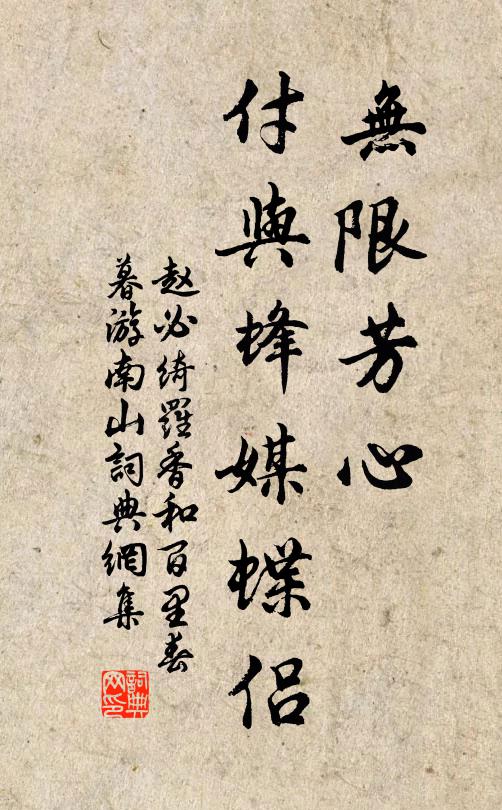 無限芳心
付與蜂媒蝶侶
赵必绮羅香和百里春
暮游南山詞典網集
詞典
网印